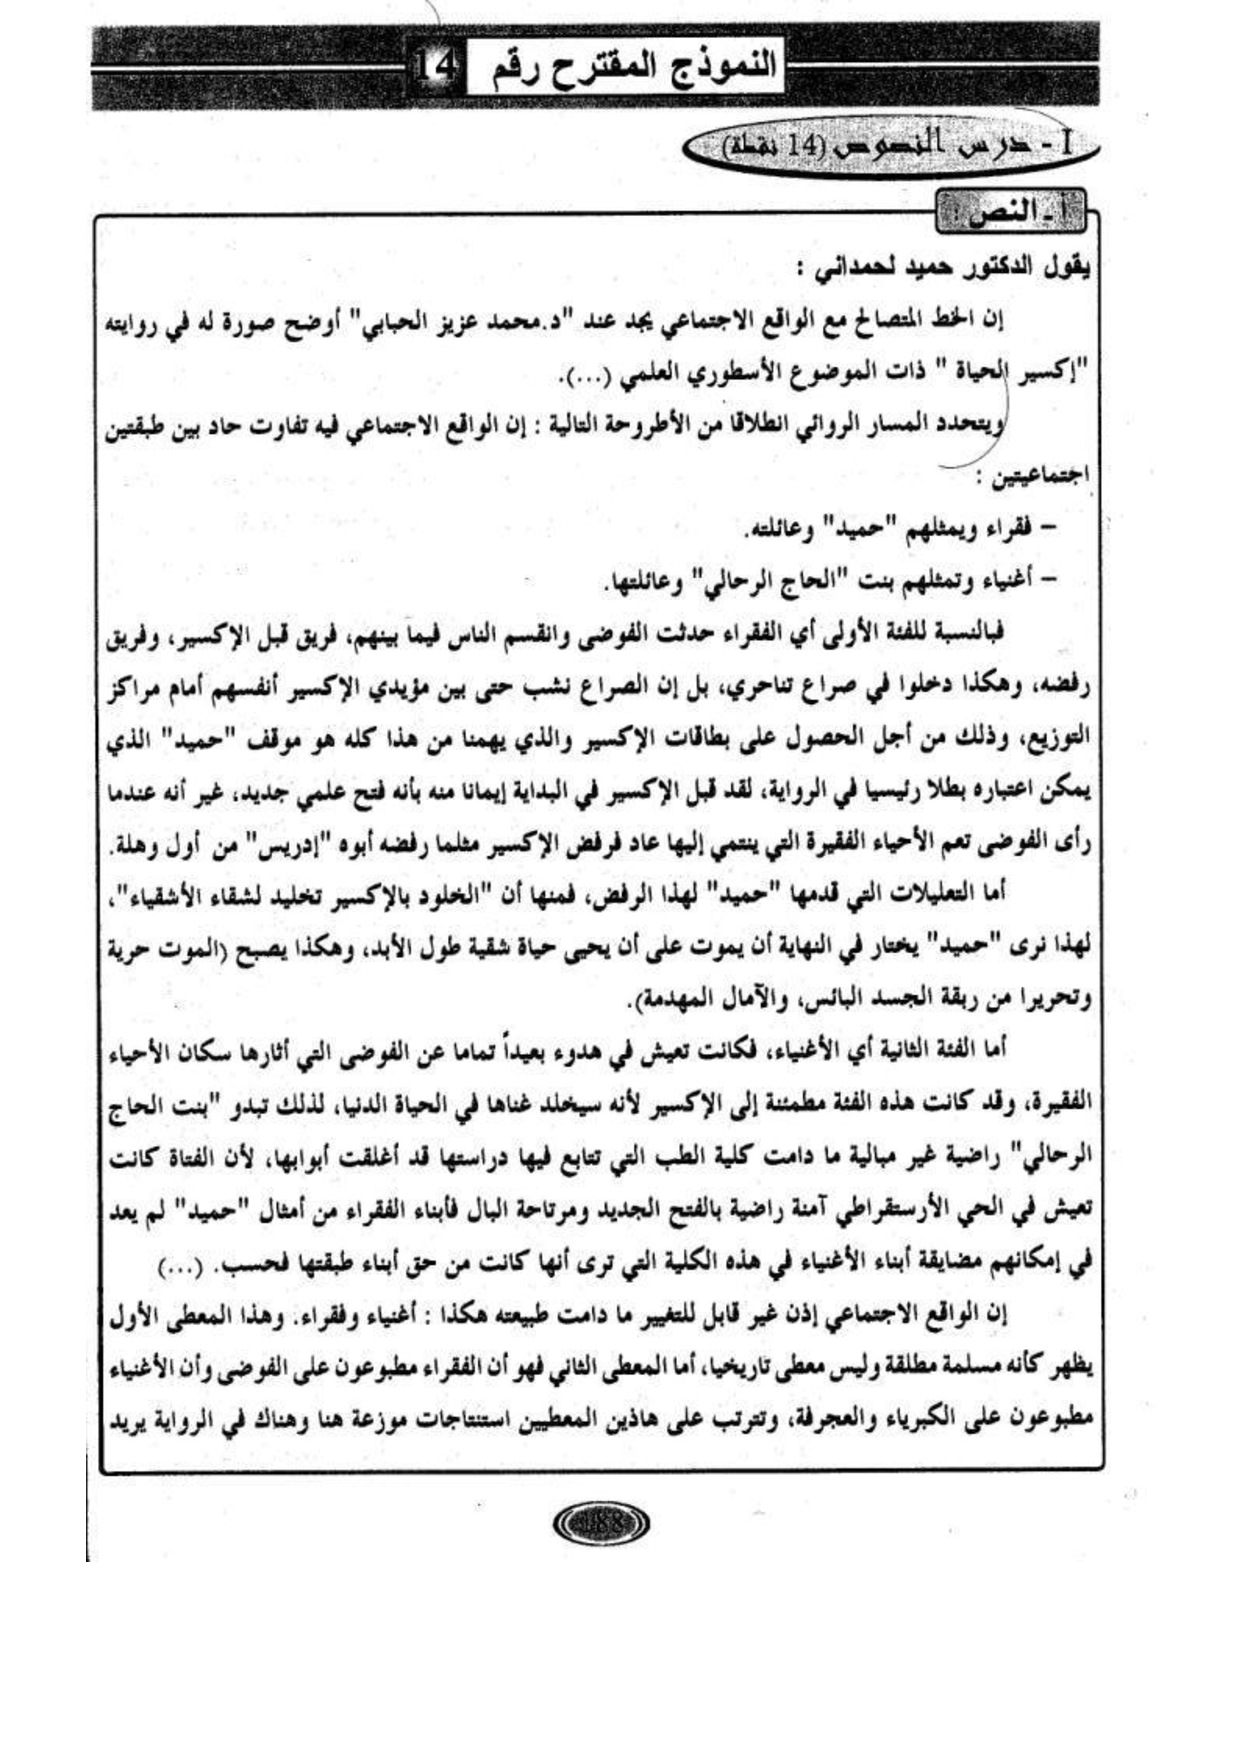 النموذج المقترح رقم 14
I - درس النصوص (14 نقطة)
أ - النص :
يقول الدكتور حميد لحمداني :
إن الخط المتصالح مع الواقع الاجتماعي يجد عند "د.محمد عزيز الحبابي" أوضح صورة له في روايته
"إكسير الحياة " ذات الموضوع الأسطوري العلمي (...).
ويتحدد المسار الروائي انطلاقا من الأطروحة التالية : إن الواقع الاجتماعي فيه تفاوت حاد بين طبقتين
اجتماعيتين :
– فقراء ويمثلهم "حميد" وعائلته.
– أغنياء وتمثلهم بنت "الحاج الرحالي" وعائلتها.
فبالنسبة للفئة الأولى أي الفقراء حدثت الفوضى وانقسم الناس فيما بينهم، فريق قبل الإكسير، وفريق
رفضه، وهكذا دخلوا في صراع تناحري، بل إن الصراع نشب حتى بين مؤيدي الإكسير أنفسهم أمام مراكز
التوزيع، وذلك من أجل الحصول على بطاقات الإكسير والذي يهمنا من هذا كله هو موقف "حميد" الذي
يمكن اعتباره بطلا رئيسيا في الرواية، لقد قبل الإكسير في البداية إيمانا منه بأنه فتح علمي جديد، غير أنه عندما
رأى الفوضى تعم الأحياء الفقيرة التي ينتمي إليها عاد فرفض الإكسير مثلما رفضه أبوه "إدريس" من أول وهلة.
أما التعليلات التي قدمها "حميد" لهذا الرفض، فمنها أن "الخلود بالإكسير تخليد لشقاء الأشقياء"،
لهذا نرى "حميد" يختار في النهاية أن يموت على أن يحيى حياة شقية طول الأبد، وهكذا يصبح (الموت حرية
وتحريرا من ربقة الجسد البائس، والآمال المهدمة).
أما الفئة الثانية أي الأغنياء، فكانت تعيش في هدوء بعيداً تماما عن الفوضى التي أثارها سكان الأحياء
الفقيرة، وقد كانت هذه الفئة مطمئنة إلى الإكسير لأنه سيخلد غناها في الحياة الدنيا، لذلك تبدو "بنت الحاج
الرحالي" راضية غير مبالية ما دامت كلية الطب التي تتابع فيها دراستها قد أغلقت أبوابها، لأن الفتاة كانت
تعيش في الحي الأرستقراطي آمنة راضية بالفتح الجديد ومرتاحة البال فأبناء الفقراء من أمثال "حميد" لم يعد
في إمكانهم مضايقة أبناء الأغنياء في هذه الكلية التي ترى أنها كانت من حق أبناء طبقتها فحسب. (...)
إن الواقع الاجتماعي إذن غير قابل للتغيير ما دامت طبيعته هكذا : أغنياء وفقراء. وهذا المعطى الأول
يظهر كأنه مسلمة مطلقة وليس معطى تاريخيا، أما المعطى الثاني فهو أن الفقراء مطبوعون على الفوضى وأن الأغنياء
مطبوعون على الكبرياء والعجرفة، وتترتب على هاذين المعطيين استنتاجات موزعة هنا وهناك في الرواية يريد
188